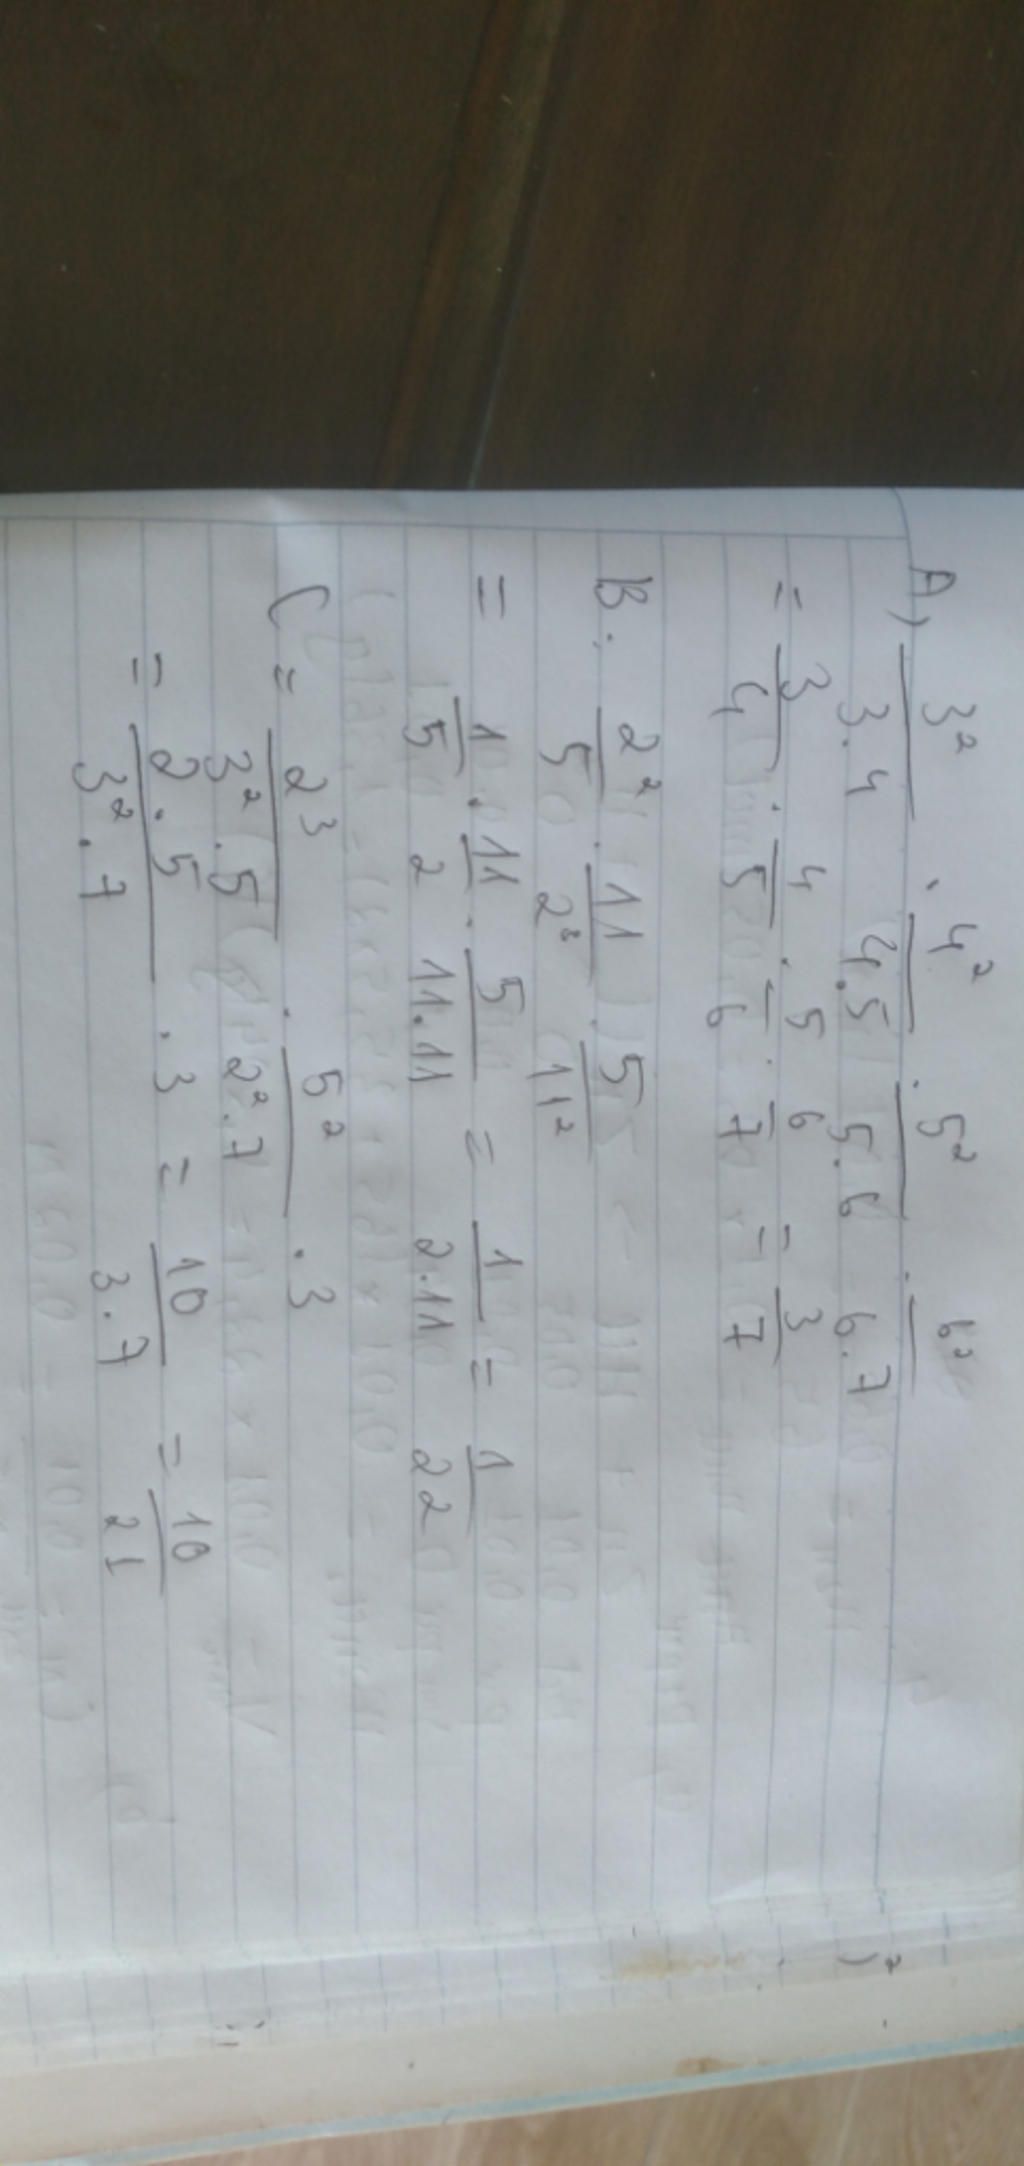 A) 3²/3.4 . 4²/4.5 . 5²/5.6 . 6²/6.7
= 3/4 . 4/5 . 5/6 . 6/7 = 3/7
B: 2²/5 . 11/2³ . 5/11²
= 1/5 . 11/2 . 5/11.11 = 1/2.11 = 1/22
C = 2³/3².5 . 5²/2².7 . 3
= 2.5/3².7 . 3 = 10/3.7 = 10/21